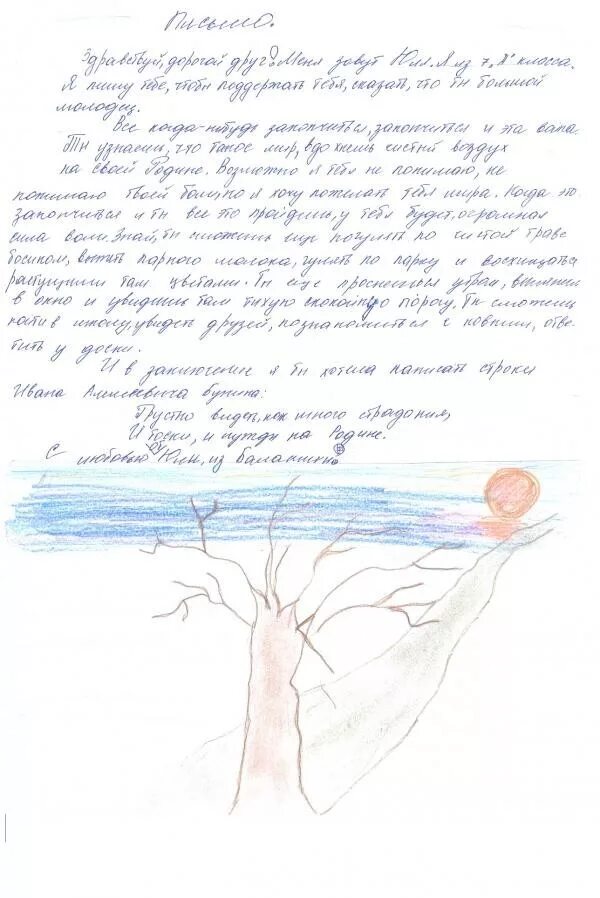 Письмо.
Здравствуй, дорогой друг! Меня зовут Юля. Я из 7 "А" класса.
Я пишу тебе, чтобы поддержать тебя, сказать, что ты большой
молодец.
Все когда-нибудь закончиться, закончится и эта
Ты узнаешь, что такое мир, вдохнешь чистый воздух
на своей Родине. Возможно я тебя не понимаю, не
понимаю твоей боли, но я хочу пожелать тебе мира. Когда это
закончиться и ты все это пройдешь, у тебя будет огромная
сила воли. Знай, ты сможешь еще погулять по чистой траве
босиком, выпить парного молока, гулять по парку и восхищаться
растущими там цветами. Ты еще проснешься утром, выглянешь
в окно и увидишь там тихую спокойную дорогу. Ты сможешь
пойти в школу, увидеть друзей, познакомиться с новыми, отве-
тить у доски.
И в заключение я бы хотела написать строки
Ивана Алексеевича Бунина:
Грустно видеть, как много страдания,
И тоски, и нужды на Родине.
С любовью от Юли, из Балашихи